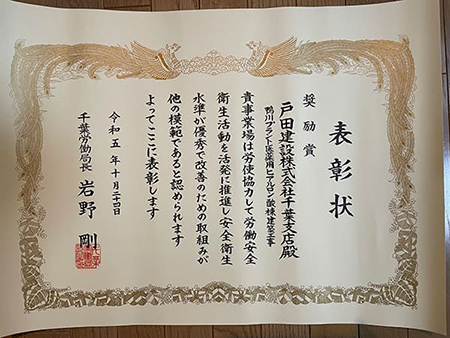 表彰状
奨励賞
戸田建設株式会社千葉支店殿
鴨川プラント医薬用ヒアルロン酸棟建築工事
貴事業場は労使協力して労働安全
衛生活動を活発に推進し安全衛生
水準が優秀で改善のための取組みが
他の模範であると認められます
よってここに表彰します
令和五年十月二十四日
千葉労働局長 岩野 剛